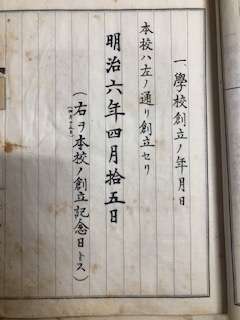 一、學校創立ノ年月日
本校ハ左ノ通リ創立セリ
明治六年四月拾五日
(右ヲ本校ノ創立記念日トス)